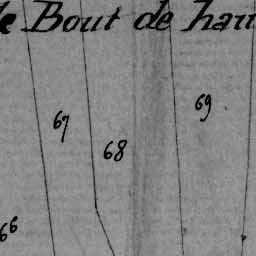 le Bout de hau
69
67
68
66